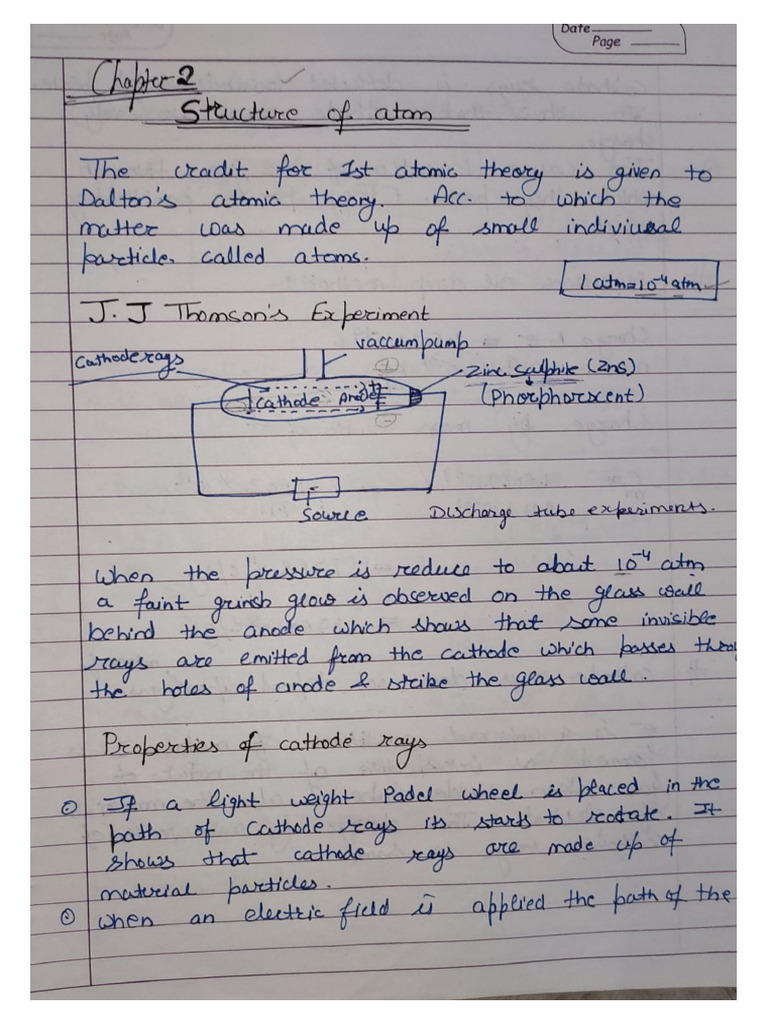 Date
Page
Chapter 2
Structure of atom
The cradit for 1st atomic theory is given to
Dalton's atomic theory. Acc. to which the
matter was made up of small indiviusal
particle, called atoms.
1 atm = 10⁻⁴ atm
J. J Thomson's Experiment
vaccum pump
Cathode rays
+
Zinc sulphide (ZnS)
Cathode Anode
(Phorphorscent)
-
Source
Discharge tube experiments.
When the pressure is reduce to about 10⁻⁴ atm
a faint grinsh glow is observed on the glass wall
behind the anode which shows that some invisible
rays are emitted from the cathode which passes throu
the holes of anode & strike the glass wall.
Properties of cathode rays
If a light weight Padel wheel is placed in the
path of Cathode rays its starts to rotate. It
shows that cathode rays are made up of
material particles.
When an electric field is applied the path of the